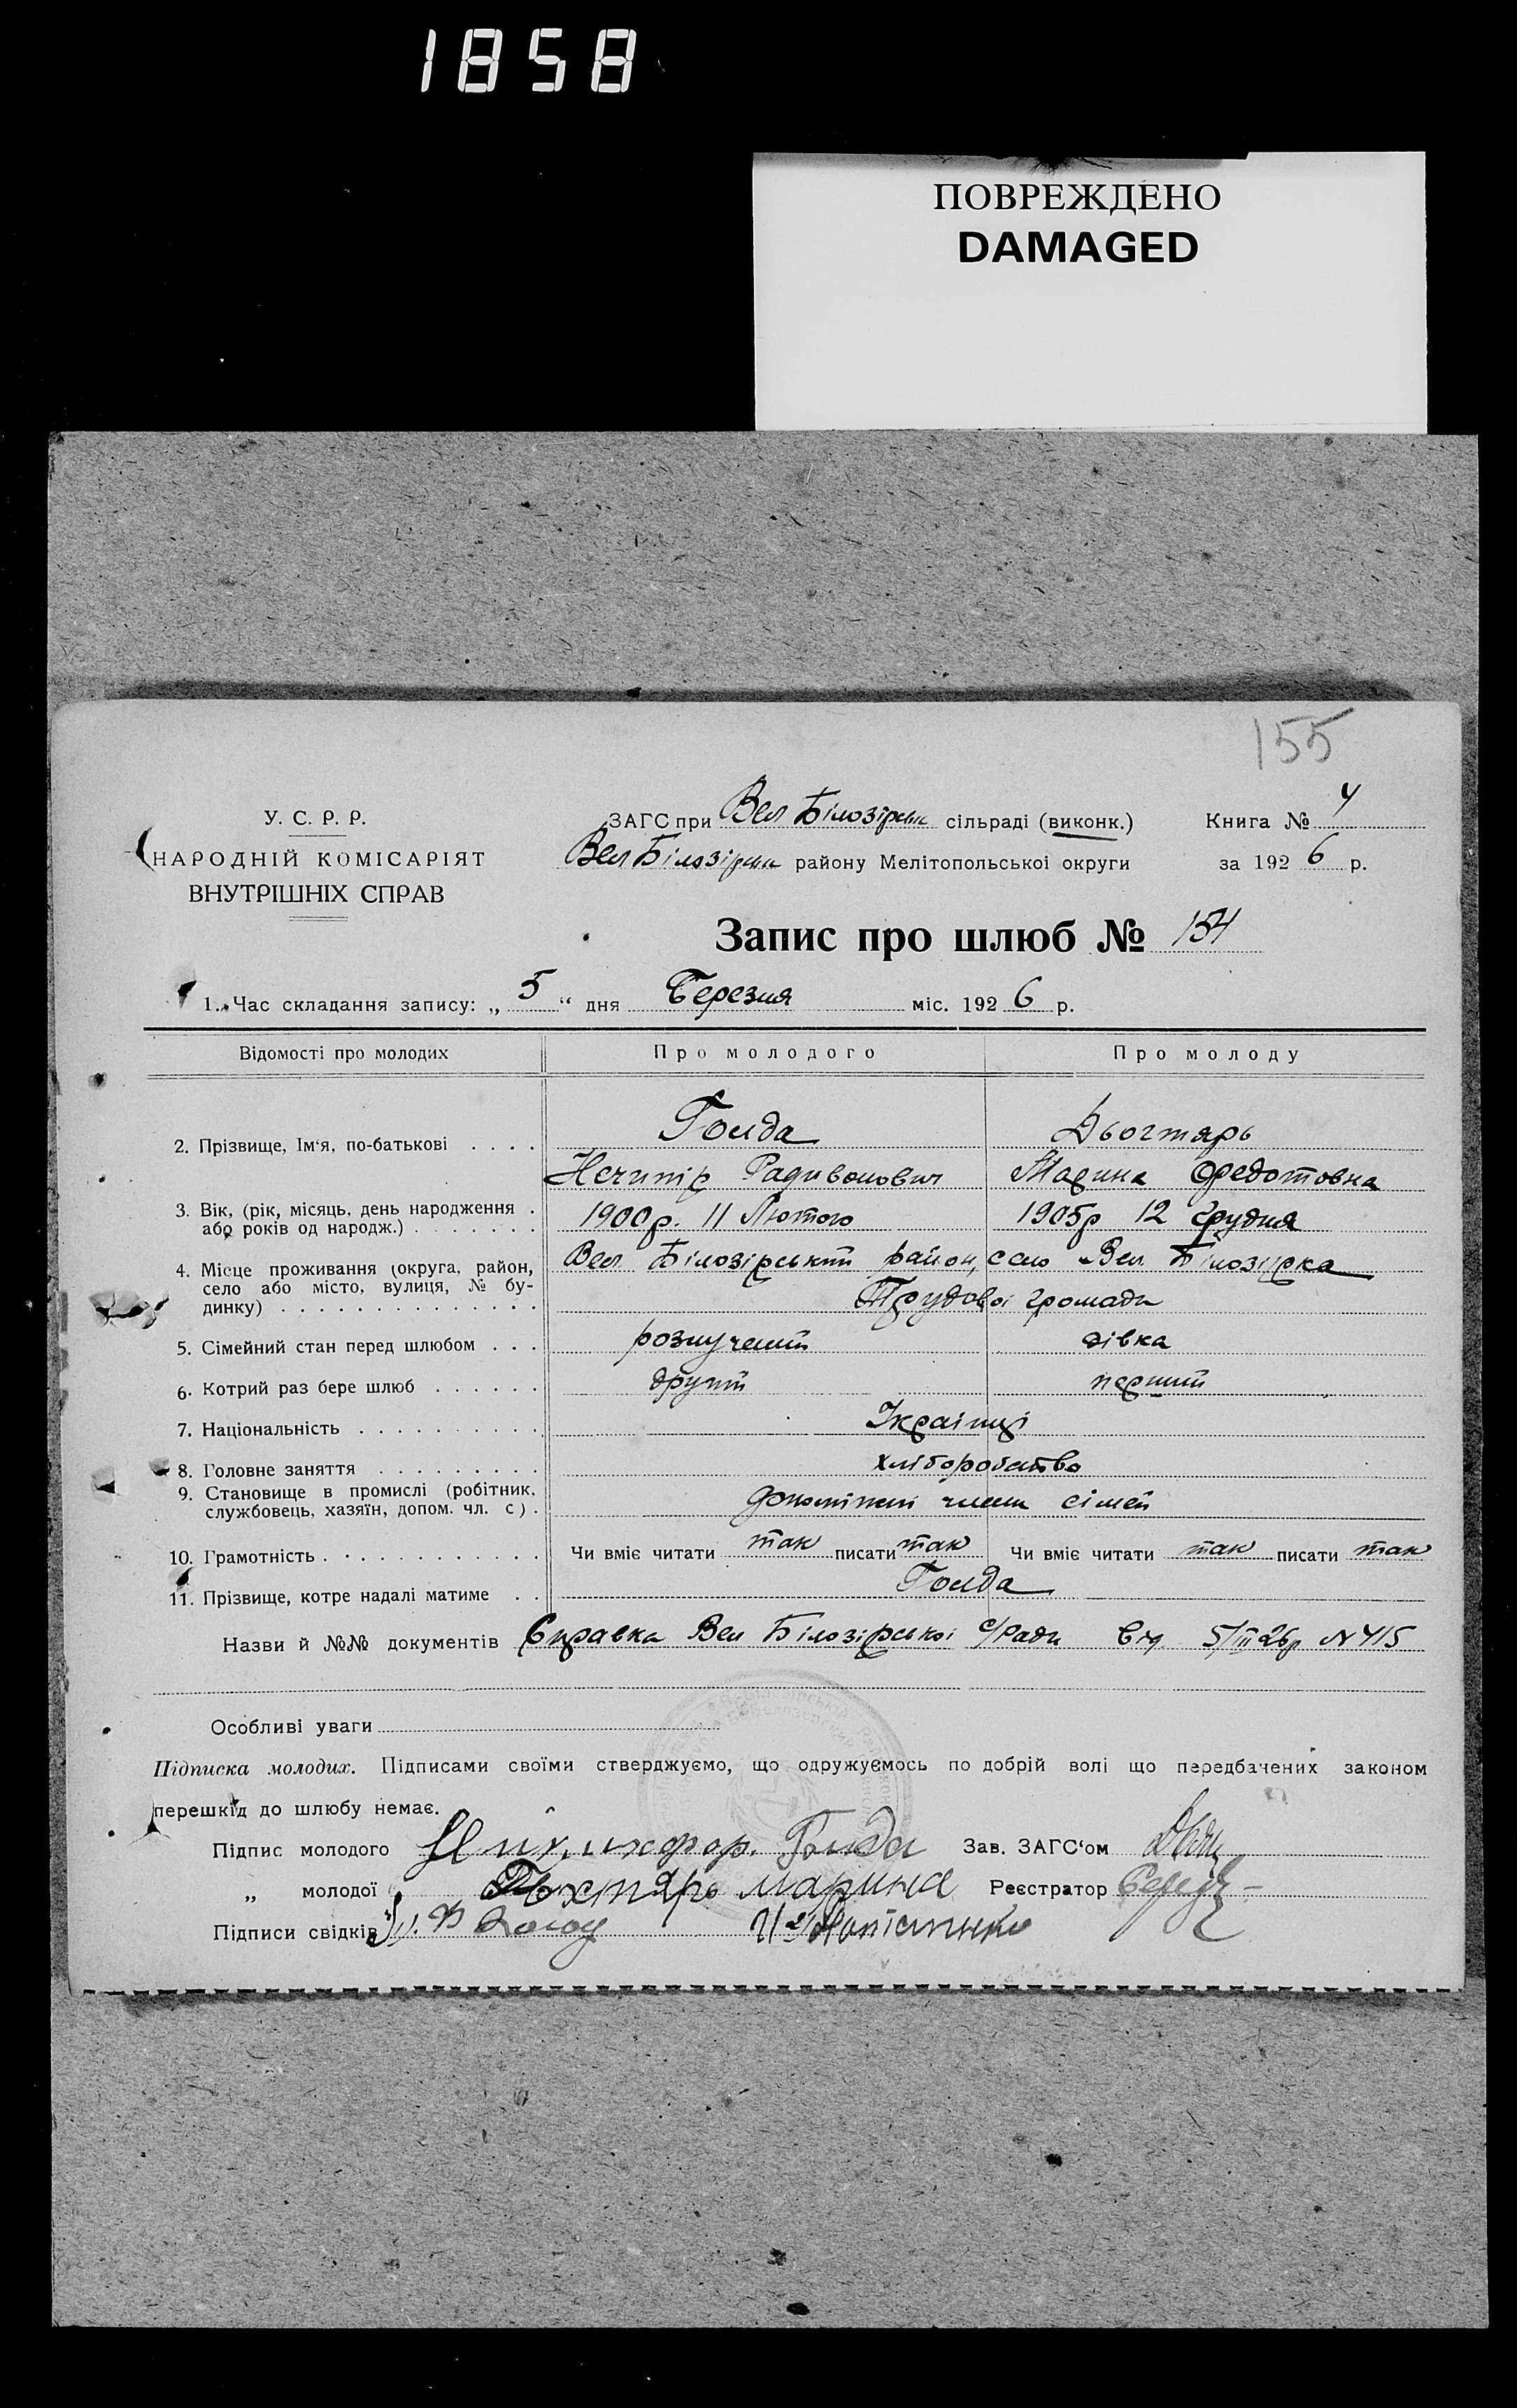 1858
ПОВРЕЖДЕНО
DAMAGED
155
У. С. Р. Р.
НАРОДНІЙ КОМІСАРІЯТ
ВНУТРІШНІХ СПРАВ
ЗАГС при Вел Білозірськ сільраді (виконк.)
Вел Білозірськ району Мелітопольської округи
Книга № 4
за 1926 р.
Запис про шлюб № 154
1. Час складання запису: „ 5 “ дня Березня міс. 1926 р.
Відомості про молодих Про молодого Про молоду
2. Прізвище, Ім‘я, по-батькові . . . . Гонда Дьогтярь
Нечипір Радивонович Марина Федотовна
3. Вік, (рік, місяць, день народження . 1900р. 11 Лютого 1905р 12 Грудня
або років од народж.) . . . . . . .
4. Місце проживання (округа, район, Вел Білозірський район, село Вел Білозірка
село або місто, вулиця, № бу-
динку) . . . . . . . . . . . . . . Трудової громади
5. Сімейний стан перед шлюбом . . . розлучений дівка
6. Котрий раз бере шлюб . . . . . . другий перший
7. Національність . . . . . . . . . . Українці
8. Головне заняття . . . . . . . . . хліборобство
9. Становище в промислі (робітник,
службовець, хазяїн, допом. чл. с) . допомічні члени сімей
10. Грамотність . . . . . . . . . . . . Чи вміє читати так писати так Чи вміє читати так писати так
11. Прізвище, котре надалі матиме . . Гонда
Назви й №№ документів Справка Вел Білозірської с/Ради від 5/III 26р N 415
Особливі уваги
Підписка молодих. Підписами своїми стверджуємо, що одружуємось по добрій волі що передбачених законом
перешкід до шлюбу немає.
Підпис молодого Зав. ЗАГС‘ом
„ молодої марина Реєстратор
Підписи свідків